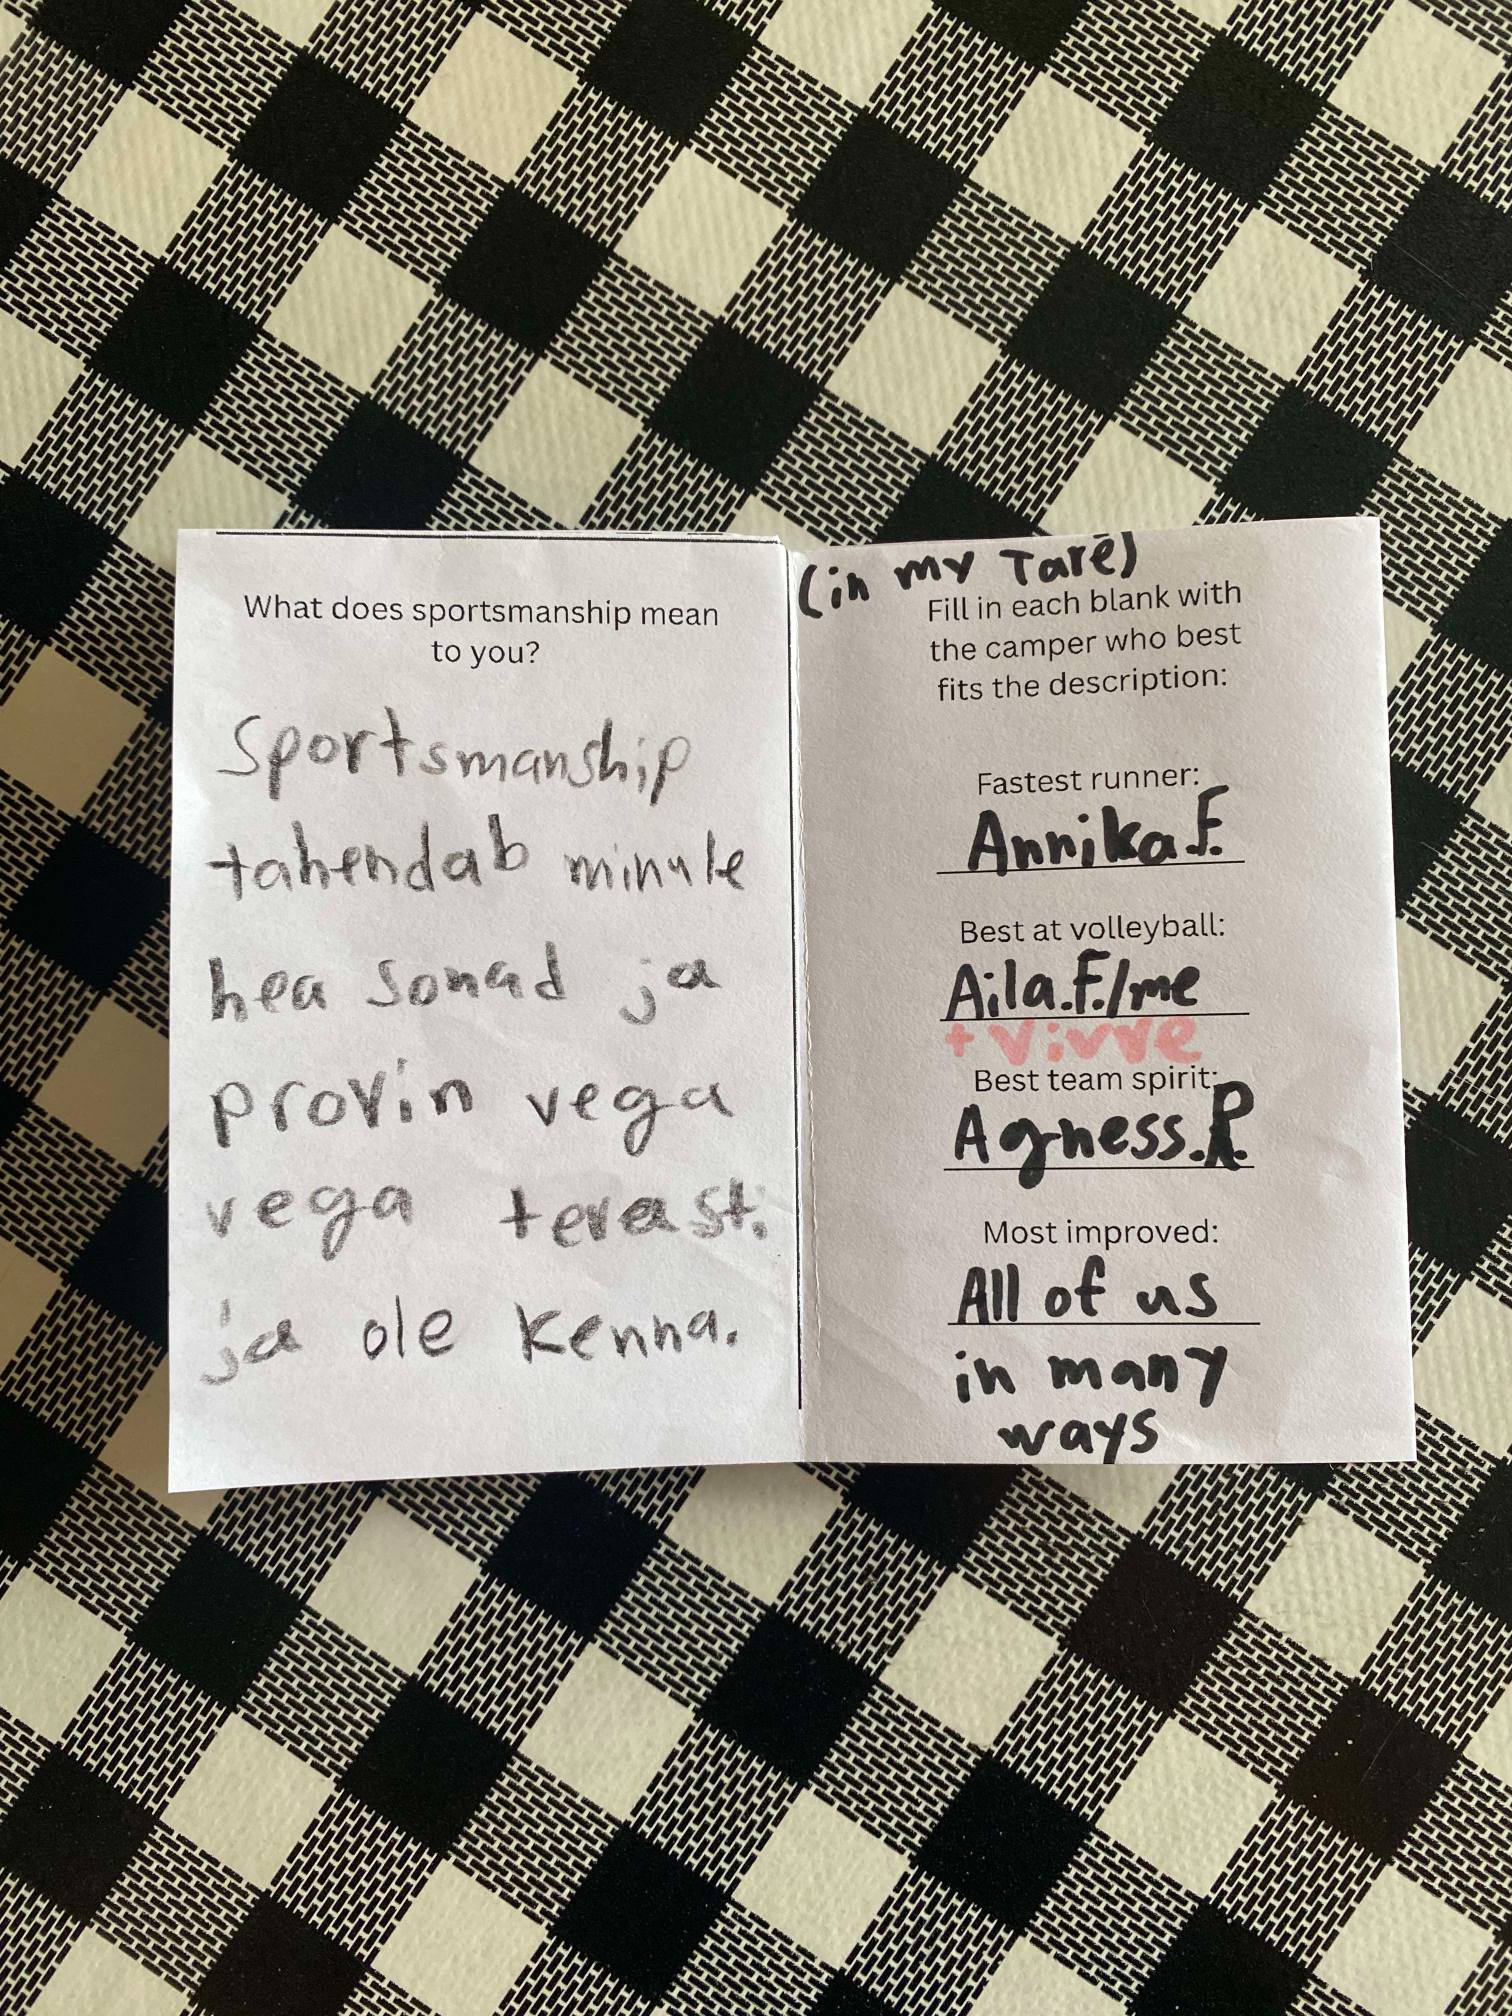 What does sportsmanship mean
to you?
Sportsmanship
tahendab minule
hea sonad ja
provin vega
vega terast.
ja ole kenna.
(in my Tarē)
Fill in each blank with
the camper who best
fits the description:
Fastest runner:
Annika F.
Best at volleyball:
Aila.F./me
+ Vivve
Best team spirit:
Agness.R.
Most improved:
All of us
in many
ways